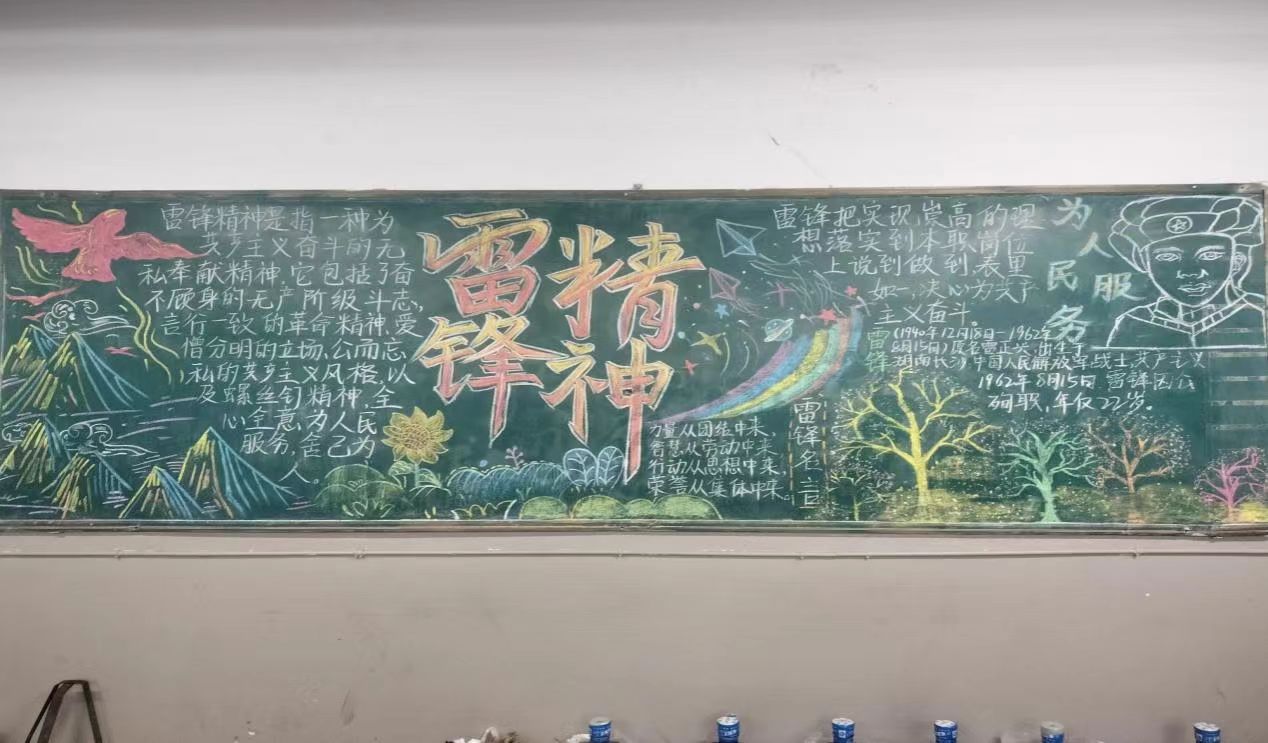 雷锋精神是指一种为
共产主义奋斗的无
私奉献精神,它包括了奋
不顾身的无产阶级斗志,
言行一致的革命精神,爱
憎分明的立场,公而忘
私的共产主义风格,以
及螺丝钉精神,全
心全意为人民
服务,舍己为
人。
雷锋
精神
力量从团结中来,
智慧从劳动中来,
行动从思想中来,
荣誉从集体中来。
雷锋名言
雷锋把实现崇高的理
想落实到本职岗位
上说到做到,表里
如一,决心为共产
主义奋斗。
为人民服务
雷锋(1940年12月18日—1962年
8月15日)原名雷正兴,出生于
湖南长沙,中国人民解放军战士,共产主义
1962年8月15日,雷锋因公
殉职,年仅22岁。